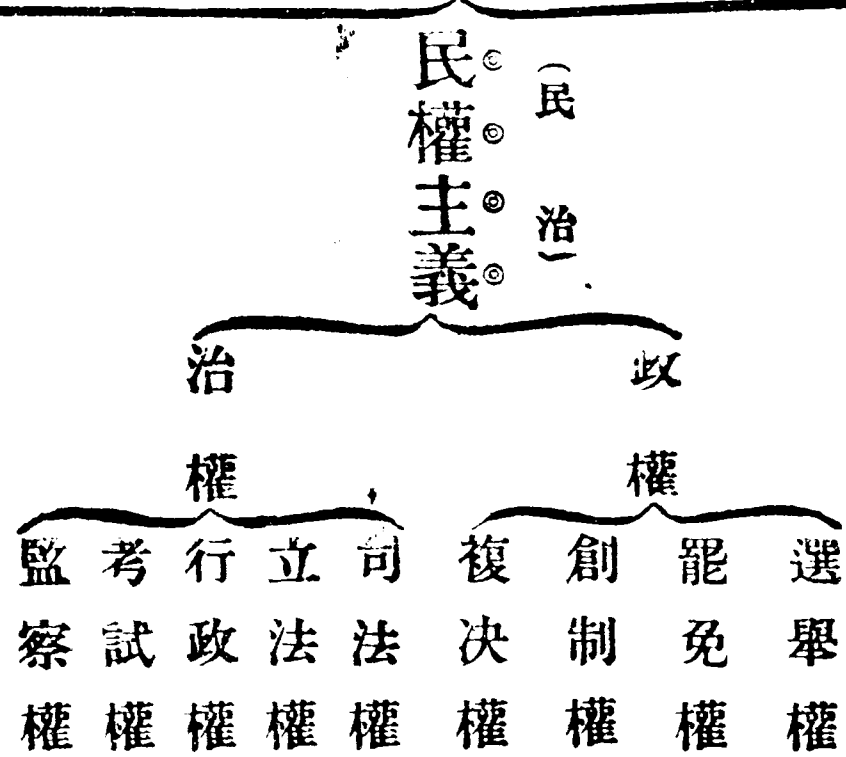 民權主義
（民治）
政權
選舉權
罷免權
創制權
複决權
治權
司法權
立法權
行政權
考試權
監察權